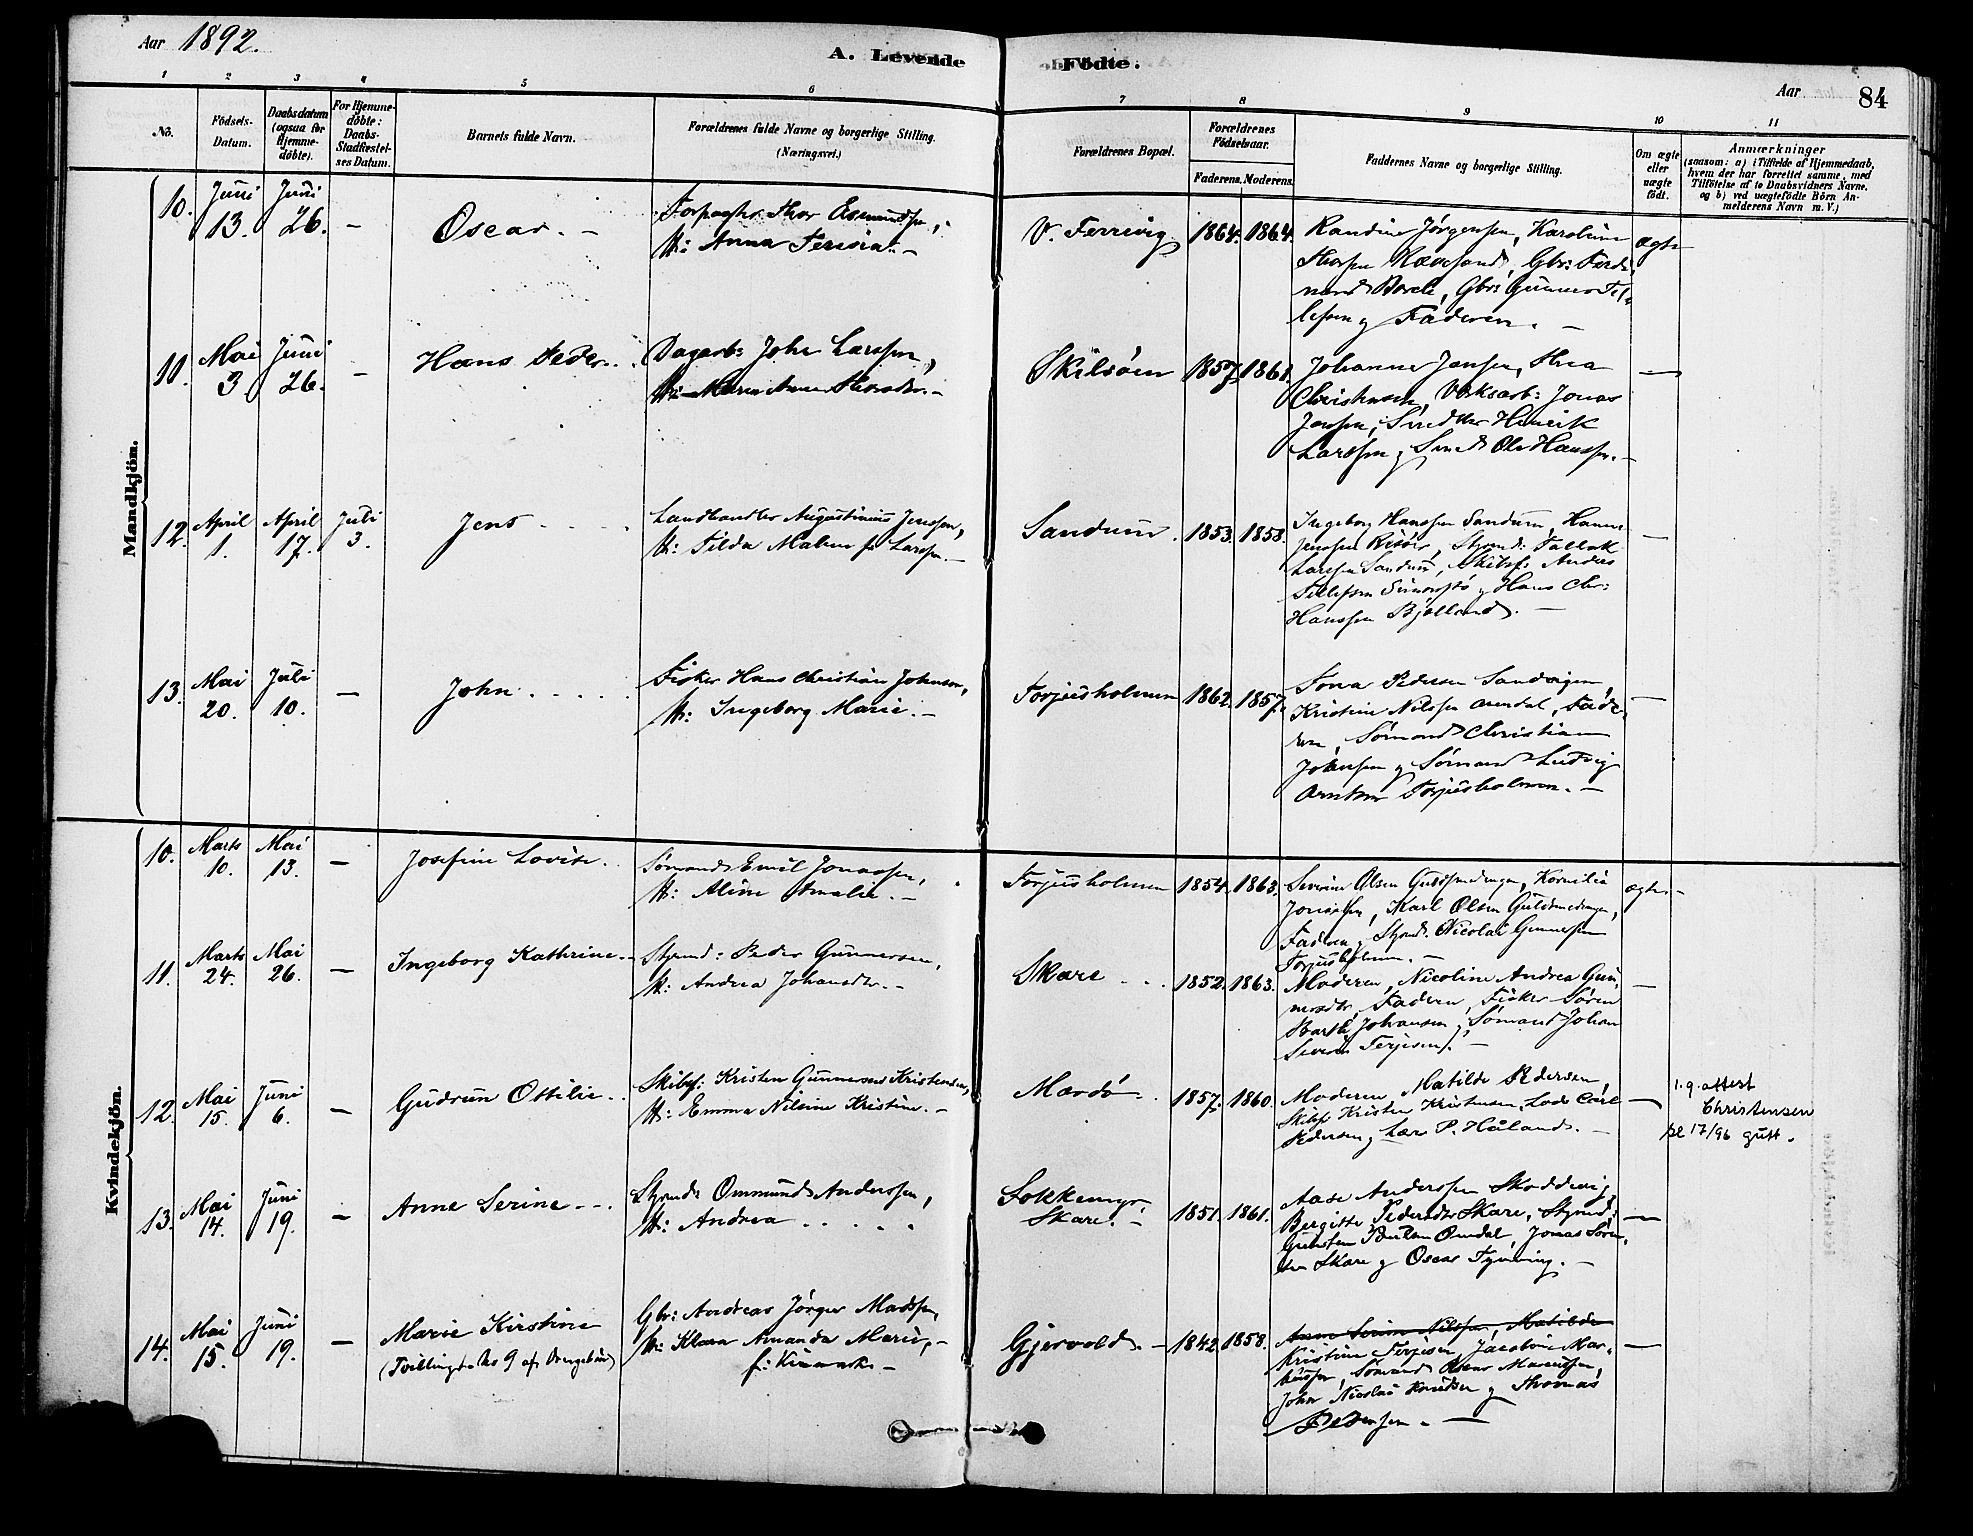 Aar 1892.
A. Levende Födte.
Aar 84
1 2 3 4 5 6 7 8 9 10 11
No.
Födsels-Datum.
Daabsdatum (ogsaa for Hjemme-döbte).
For Hjemme-döbte: Daabs-Stadfæstel-ses Datum.
Barnets fulde Navn.
Forældrenes fulde Navne og borgerlige Stilling. (Næringsvei.)
Forældrenes Bopæl.
Forældrenes Födselsaar.
Faderens. Moderens.
Faddernes Navne og borgerlige Stilling.
Om ægte eller uægte födt.
Anmærkninger
(saasom: a) i Tilfælde af Hjemmedaab,
hvem der har forrettet samme, med
Tilföielse af to Daabsvidners Navne,
og b) ved uægtefödte Börn An-
melderens Navn m. V.)
Mandkjön.
10. Juni 13. Juni 26. — Oscar. —
Forpagter Thor
H: Anna
V. Ferrivig 1864. 1864.
Randine Jørgensen, Karoline
Gbr: Ferdi-
nand
og Faderen. —
ægte
11. Mai 3 Juni 26. — Hans Peder
Dagarb: John Larssen,
Skilsöen 1857 1861
Johanne Jansen, Thea
Christensen, Verksarb: Jonas
Jensen, Henrik
Larssen og Ole Hanssen. —
—
12. April 1. April 17. Juli 3. Jens
Landhandler Augustinius Jenssen,
H: Tilda f. Larssen. —
Sandum. 1853. 1858.
Ingeborg Hanssen Sandum,
Jenssen Risöer, Styrmd: Tallak
Larssen Sandum, Skibsf: Anders
og Hans Chr:
Hanssen Bjelland. —
—
13. Mai 20. Juli 10. — John
Fisker Hans Christian Johnsen,
H: Ingeborg Marie. —
Torjusholmen 1862. 1857.
Pedersen Sandvigen,
Kristine Nilssen Arendal, Fade-
ren, Sömand Christian
Johnsen og Sömand Ludvig
Torjusholmen. —
—
Kvindekjön.
10. Marts 10. Mai 13. — Josefine Lovise.
Sömand Emil Jonassen,
H: Aline Amalie. —
Torjusholmen 1854. 1863.
Severine Olsen Kornelia
Jonassen, Karl Olsen
Faderen og Styrmd: Nicolai Gunnersen
Torjusholmen. —
ægte. —
11. Marts 24. Mai 26. — Ingeborg Kathrine
Styrmd: Peder Gunnersen,
H: Andrea Johansdtr. —
Skare 1852. 1863.
Moderen, Nicoline Andrea Gun-
nersdtr, Faderen, Fisker Sören
Johansen og Sömand Johan
Severin Terjesen. —
—
12. Mai 15. Juni 6. — Gudrun Ottilie
Skibsf: Kristen Gunnersen Kristensen,
H: Emma Nilsine Kristine. —
Mærdö 1857. 1860.
Moderen, Matilde Pedersen,
Skibsf: Kristen Kristensen, Lods Carl
Pedersen og Lær P. Håland. —
—
1. g. attest
Christensen
17/96 gutt.
13. Mai 14. Juni 19. — Anne Serine
Styrmd: Ommund Anderssen,
H: Andrea
Sokkemyr.
Skare. — 1851. 1861.
Aase Anderssen
Bergitte Pedersdtr Skare, Styrmd:
Omdal, Jonas Sören-
sen Skare og Oscar
—
14. Mai 15. Juni 19. — Marie Kirstine
(Tvilling No 9 af Drengebörn)
Gbr: Andreas Jörgen Madssen,
H: Klara Amanda Marie, —
Gjervold. — 1842 1858.
Anne Serine Nilssen, Matilde
Kristine Terjesen, Jacobine Mar-
Sömand Oscar
John Nicolai Knudsen og Thomas
Pedersen. —
—